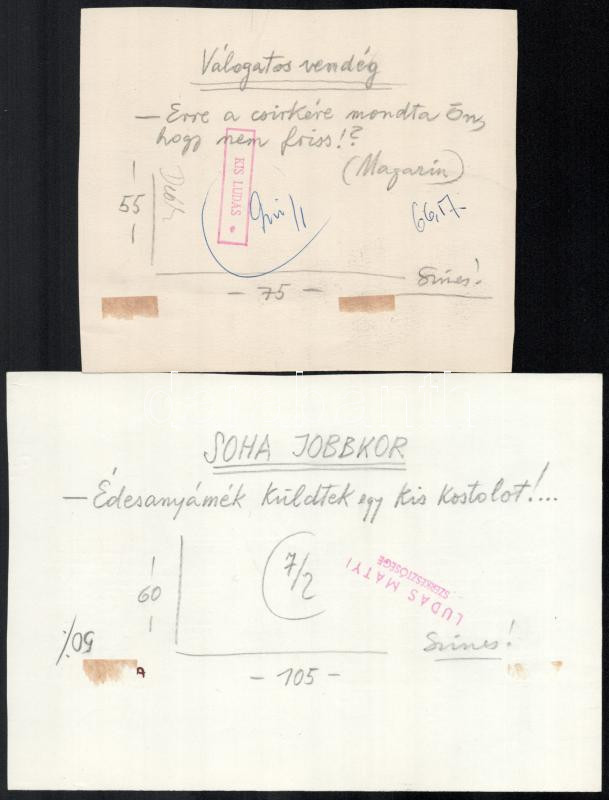 Válogatos vendég
— Erre a csirkére mondta Ön,
hogy nem friss!?
(Magazin)
KIS LUDAS
55
66,17.
- 75 -
Szines!
SOHA JOBBKOR
— Édesanyámék küldtek egy kis kostolot!...
7/2
LUDAS MATYI
SZERKESZTŐSÉGE
60
50%
Szines!
- 105 -